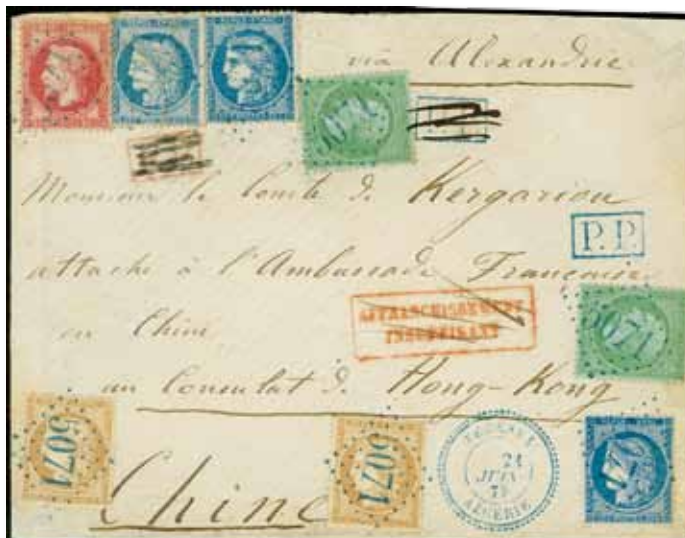 via Alexandrie
5071
Monsieur le Comte de Kergariou
P.P.
attaché à l'Ambassade Française
en Chine
AFFRANCHISSEMENT
INSUFFISANT
5071
au Consulat de Hong-Kong
5071
5071
24
JUIN
ALGÉRIE
Chine